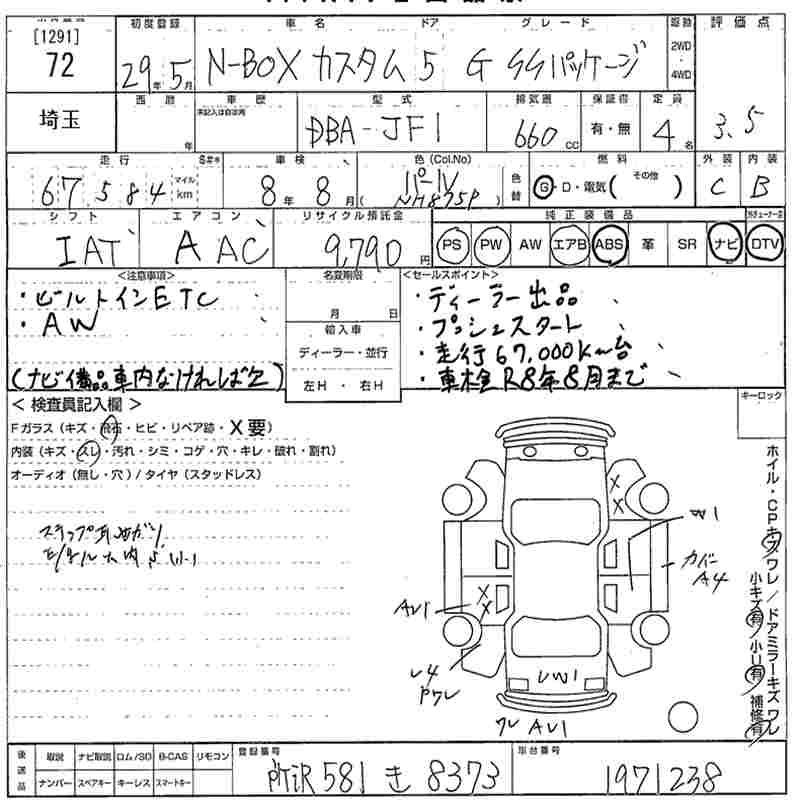 [1291]
72
初度登録
29年5月
車名 ドア グレード
N-BOX カスタム 5 G SSパッケージ
駆動
2WD
・
4WD
評価点
3.5
埼玉
西暦
年
車歴
未記入は自家用
型式
DBA-JF1
排気量
660 cc
保証書
有・無
定員
4名
走行
67584
マイル
km
車検
8年8月
色(Col.No)
パール
(NH875P)
色替
燃料
G・D・電気(その他)
外装
C
内装
B
シフト
IAT
エアコン
AAC
リサイクル預託金
9,790円
純正装備品
PS PW AW エアB ABS 革 SR ナビ DTV
<注意事項>
・ビルトインETC
・AW
(ナビ備品車内なければ欠)
名変期限
月 日
輸入車
ディーラー・並行
左H・右H
<セールスポイント>
・ディーラー出品
・プッシュスタート
・走行67,000Km台
・車検R8年8月まで
キーロック
<検査員記入欄>
Fガラス(キズ・飛石・ヒビ・リペア跡・X要)
内装(キズ・スレ・汚れ・シミ・コゲ・穴・キレ・破れ・割れ)
オーディオ(無し・穴)/タイヤ(スタッドレス)
X
X
W1
カバー
A4
X
X
AU1
UW1
ワレ AU1
ホイル・CPキズワレ/ドアミラーキズワレ
小キズ有/小U有/補修有
後送品
取説 ナビ取説 ロム/SD B-CAS リモコン
ナンバー スペアキー キーレス スマートキー
登録番号
581 き 8373
車台番号
1971238